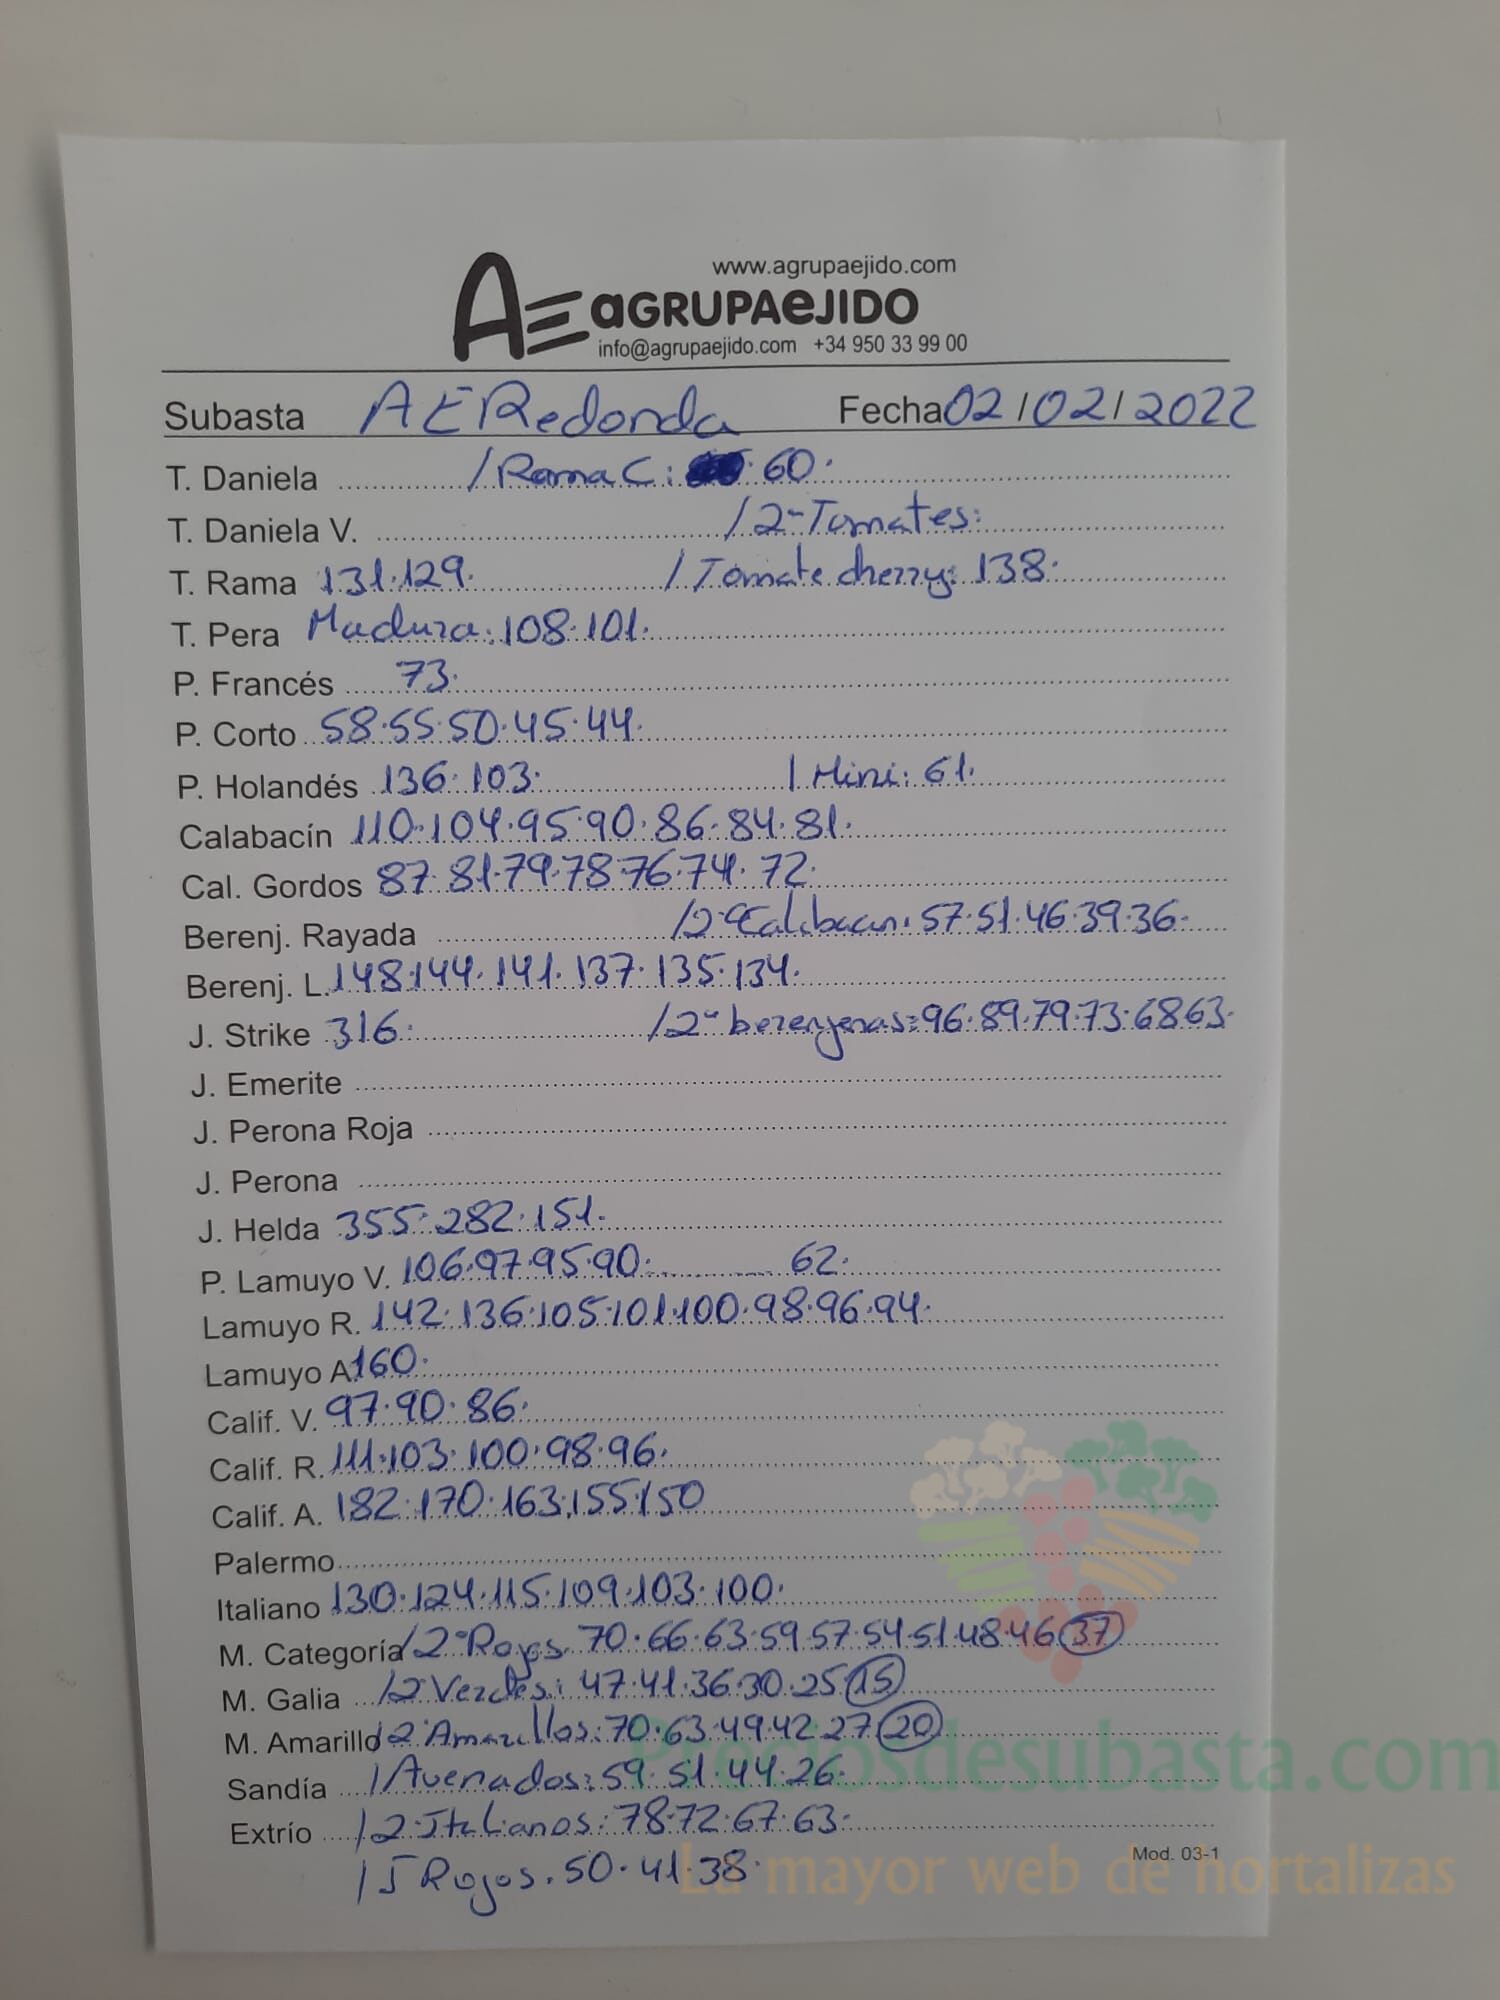 www.agrupaejido.com
AE aGRUPAeJIDO
info@agrupaejido.com +34 950 33 99 00
Subasta AERedonda Fecha 02/02/2022
T. Daniela /Rama C: 60.
T. Daniela V. /2-Tomates:
T. Rama 131.129. /Tomate cherry: 138.
T. Pera Madura: 108.101.
P. Francés 73.
P. Corto 58.55.50.45.44.
P. Holandés 136.103. /Mini: 61.
Calabacín 110.104.95.90.86.84.81.
Cal. Gordos 87.81.79.78.76.74.72.
Berenj. Rayada 57.51.46.39.36.
Berenj. L. 148.144.141.137.135.134.
J. Strike 316. /2ª berenjenas: 96.89.79.73.68.63.
J. Emerite
J. Perona Roja
J. Perona
J. Helda 355.282.151.
P. Lamuyo V. 106.97.95.90. 62.
Lamuyo R. 142.136.105.101.100.98.96.94.
Lamuyo A. 160.
Calif. V. 97.90.86.
Calif. R. 111.103.100.98.96.
Calif. A. 182.170.163.155.150
Palermo
Italiano 130.124.115.109.103.100.
M. Categoría /2ª Rojos. 70.66.63.59.57.54.51.48.46 37
M. Galia /2 Verdes: 47.41.36.30.25 15
M. Amarillo /2 Amarillos: 70.63.49.42.27 20
Sandía /Avenados: 59.51.44.26.
Extrío /2 Italianos: 78.72.67.63.
/J Rojos. 50.41.38.
Mod. 03-1
Preciosdesubasta.com
La mayor web de hortalizas